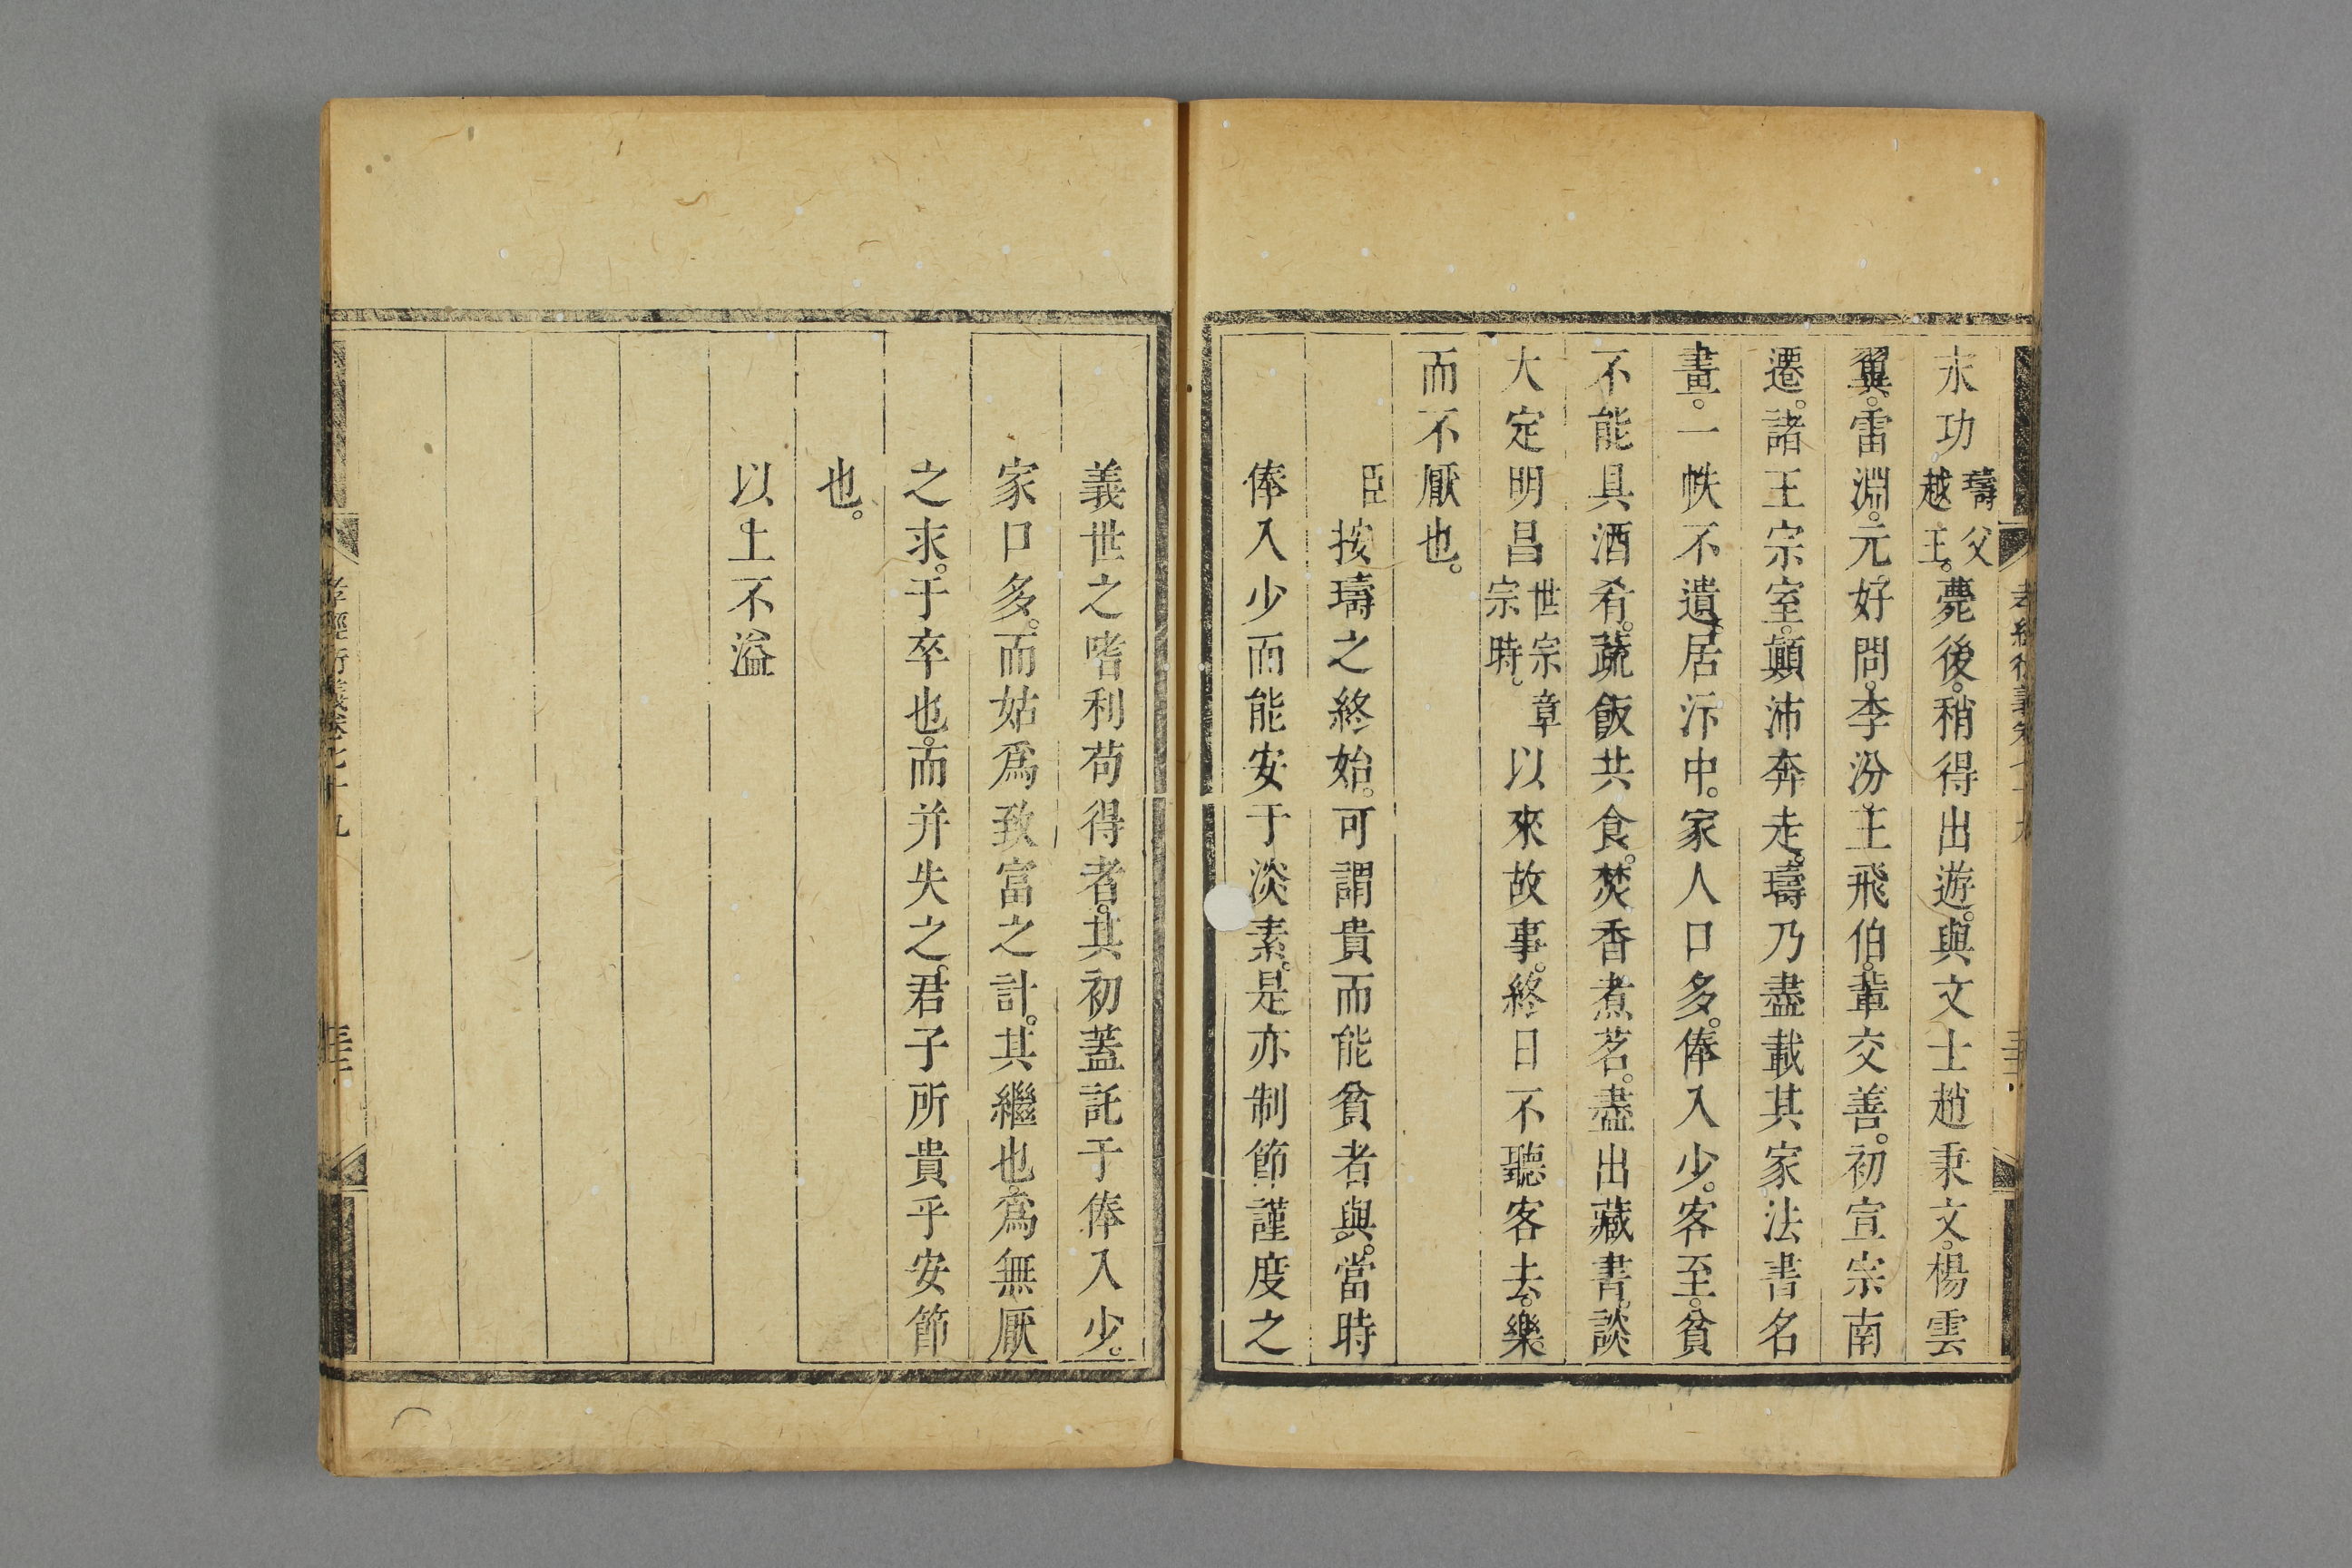 永功璹父越王。薨後。稍得出遊。與文士趙秉文。楊雲
翼。雷淵。元好問。李汾。王飛伯。輩交善。初宣宗南
遷。諸王宗室。顛沛奔走。璹乃盡載其家法書名
畫。一帙不遺。居汴中。家人口多。俸入少。客至。貧
不能具酒肴。蔬飯共食。焚香煮茗。盡出藏書。談
大定明昌世宗章宗時。以來故事。終日不聽客去。樂
而不厭也。
臣按璹之終始。可謂貴而能貧者與。當時
俸入少而能安于淡素。是亦制節謹度之
義世之嗜利苟得者。其初蓋託于俸入少。
家口多。而姑爲致富之計。其繼也。爲無厭
之求。于卒也。而并失之。君子所貴乎安節
也。
以上不溢
孝經衍義卷七十九